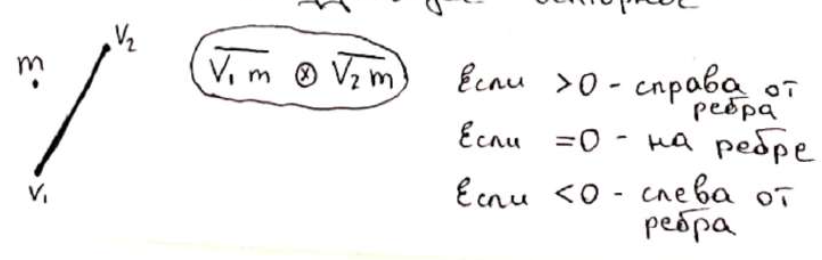 V₂
m
V₁
V₁ m ⊗ V₂ m
Если >0 - справа от
ребра
Если =0 - на ребре
Если <0 - слева от
ребра